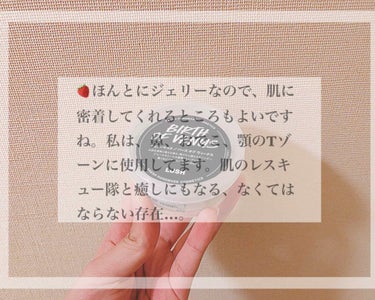 🍓ほんとにジェリーなので、肌に
密着してくれるところもよいです
ね。私は、鼻、おでこ、顎のTゾ
ーンに使用してます。肌のレスキ
ュー隊と癒しにもなる、なくては
ならない存在…。
BIRTH
OF VENUS
LUSH